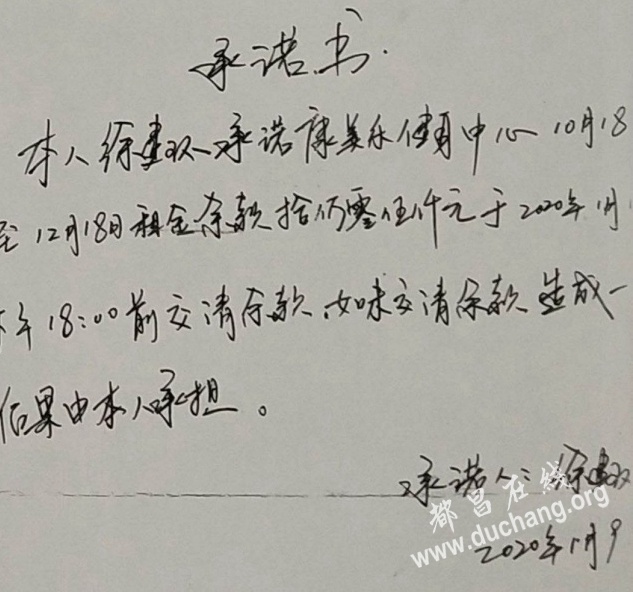 承诺书.
本人徐建双承诺康美乐健身中心10月18
至12月18日租金余款拾仂零伍仟元于2020年11月
午18:00前交清余款,如未交清余款造成一
后果由本人承担。
承诺人:徐建双
2020年11月9
都昌在线
www.duchang.org